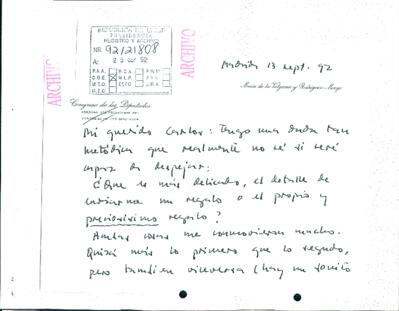 ARCHIVO
REPUBLICA DE CHILE
PRESIDENCIA
REGISTRO Y ARCHIVO
NR. 92/21808
A: 23 SEP 92
P.A.A. R.C.A.
C.B.E. M.L.P.
M.T.O. EDEC
M.Z.C.
ARCHIVO
Madrid 13 sept. 92
María de la Válgoma y Rodríguez-Monge
Congreso de los Diputados
Mi querido Carlos: Tengo una duda tan
metódica que realmente no sé si seré
capaz de despejar:
¿Qué es más delicado, el detalle de
enviarme un regalo o el propio y
preciosísimo regalo?
Ambas cosas me conmovieron mucho.
Quizá más lo primero que lo segundo,
pero también viceversa (hay un